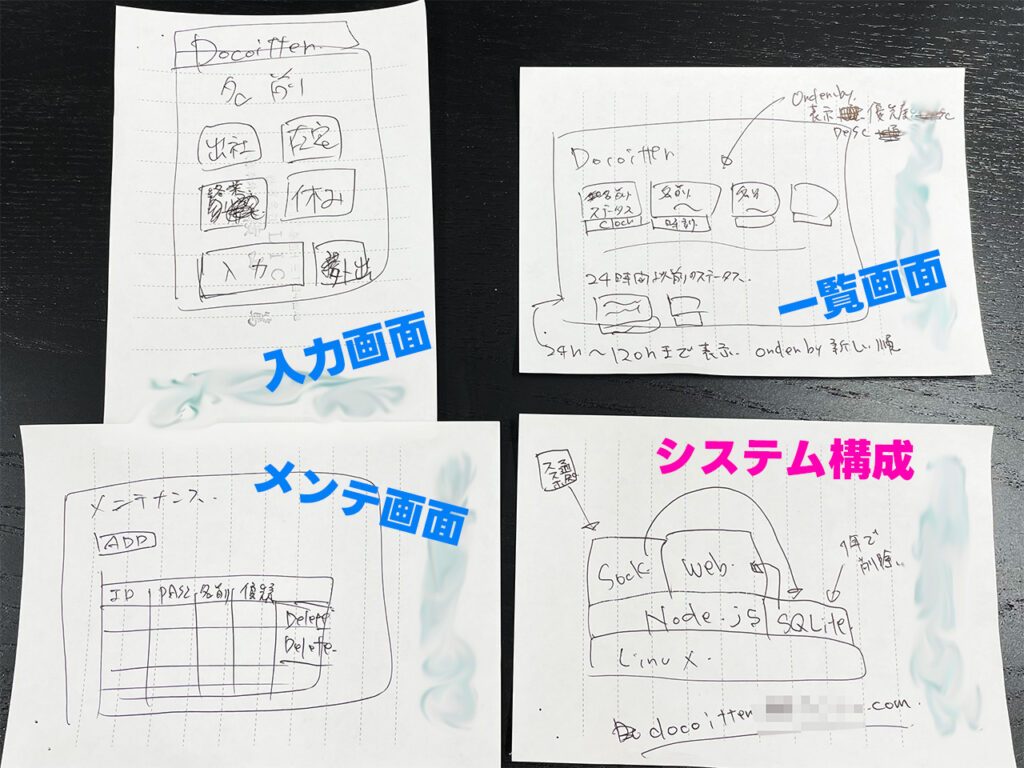 Docoitter
名前
出社
在宅
終業
休み
入力
外出
入力画面
Order by
表示 優先度
DESC
Docoitter
名前
ステータス
Clock
名前
時刻
名前
24時間以前のステータス
24h〜120hまで表示. order by 新しい順
一覧画面
メンテナンス
ADD
ID PASS 名前 優先
Delete
Delete
メンテ画面
システム構成
1年で
削除
Sock
Web
Node.js
SQLite
Linux
docoitter .com